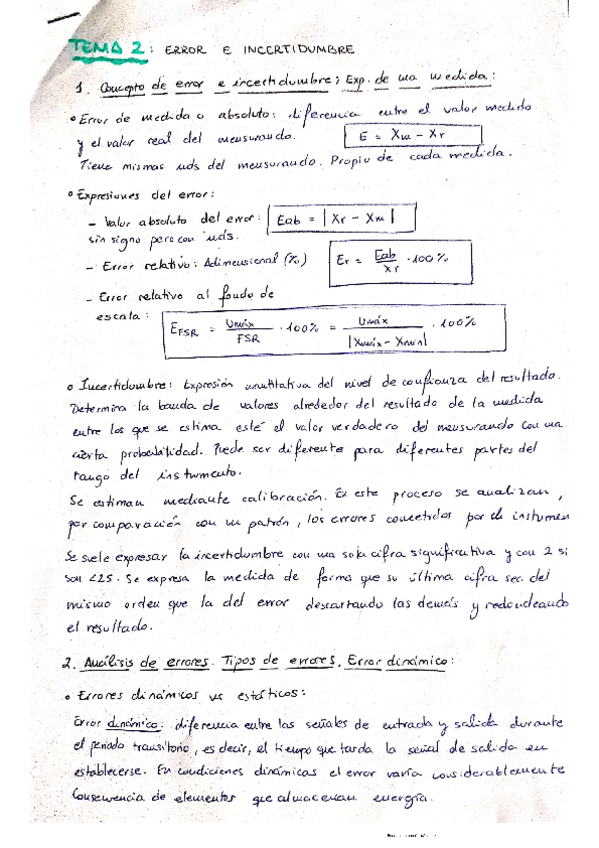 TEMA 2: ERROR E INCERTIDUMBRE
1. Concepto de error e incertidumbre; Exp. de una medida:
• Error de medida o absoluto: diferencia entre el valor medido
y el valor real del mensurando. E = Xm - Xr
Tiene mismas uds del mensurando. Propio de cada medida.
• Expresiones del error:
- Valor absoluto del error: Eab = |Xr - Xm|
sin signo pero con uds.
- Error relativo: Adimensional (%) Er = Eab / Xr · 100%
- Error relativo al fondo de
escala: EFSR = Umáx / FSR · 100% = Umáx / |Xmáx - Xmín| · 100%
• Incertidumbre: Expresión cuantitativa del nivel de confianza del resultado.
Determina la banda de valores alrededor del resultado de la medida
entre los que se estima esté el valor verdadero del mensurando con una
cierta probabilidad. Puede ser diferente para diferentes partes del
rango del instrumento.
Se estiman mediante calibración. En este proceso se analizan,
por comparación con un patrón, los errores cometidos por el instumen
Se suele expresar la incertidumbre con una sola cifra significativa y con 2 si
son <25. Se expresa la medida de forma que su última cifra sea del
mismo orden que la del error descartando las demás y redondeando
el resultado.
2. Análisis de errores. Tipos de errores. Error dinámico:
• Errores dinámicos vs estáticos:
Error dinámico: diferencia entre las señales de entrada y salida durante
el periodo transitorio, es decir, el tiempo que tarda la señal de salida en
establecerse. En condiciones dinámicas el error varía considerablemente
Consecuencia de elementos que almacenan energía.